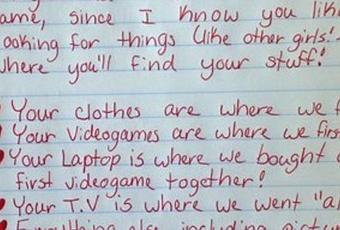 ame, since I know you like
ooking for things (like other girls'
where you'll find your stuff!
Your clothes are where we f
Your Videogames are where we firs
Your Laptop is where we bought
first videogame together!
Your T.V is where we went "al
Everything else, including pictur